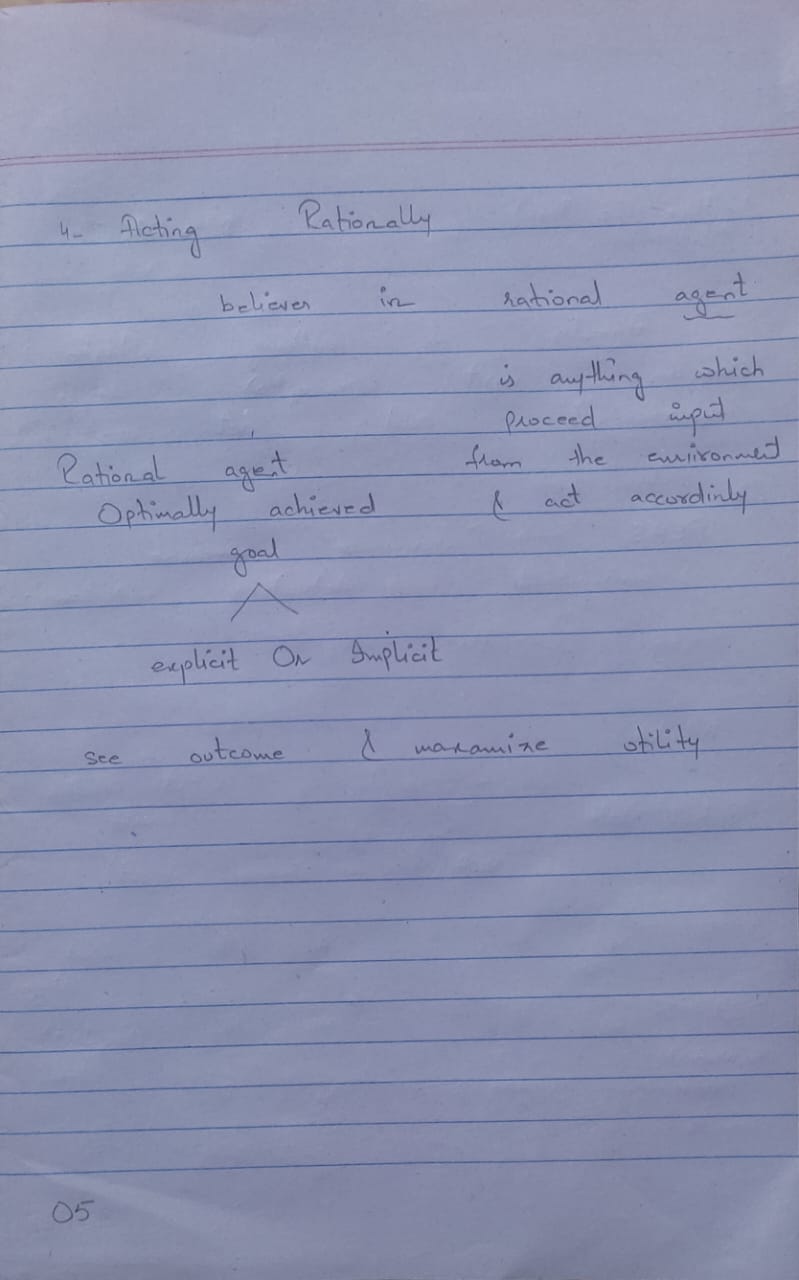 4- Acting Rationally
believer in rational agent
is anything which
proceed input
from the enviironment
& act accordinly
Rational agent
Optimally achieved
goal
explicit Or Implicit
see outcome & maxamize utility
05